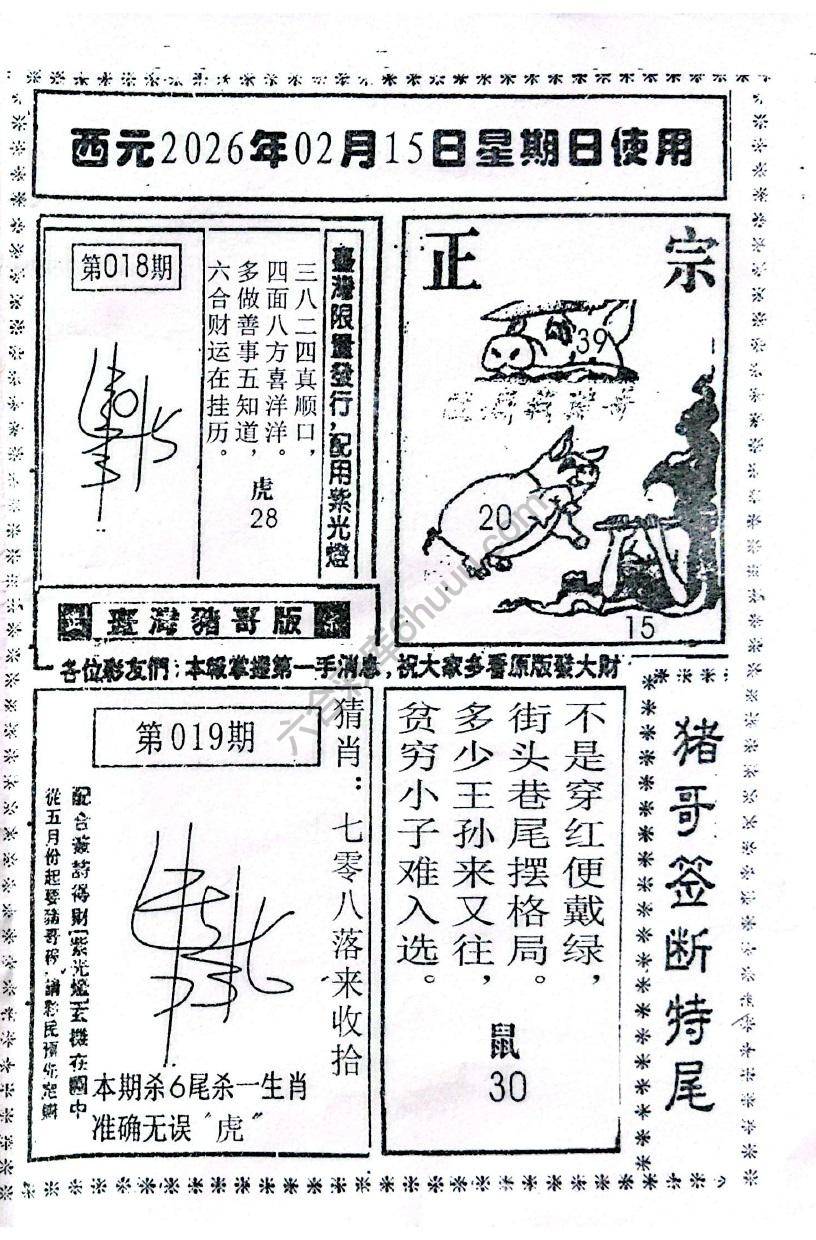 西元2026年02月15日星期日使用
第018期
臺灣限量發行，配用紫光燈
三八二四真顺口，
四面八方喜洋洋。
多做善事五知道，
六合财运在挂历。
虎
28
正宗
39
20
15
臺灣豬哥版
各位彩友們：本報掌握第一手消息，祝大家多看原版發大財
第019期
猜肖：七零八落来收拾
本期杀6尾杀一生肖
准确无误“虎”
不是穿红便戴绿，
街头巷尾摆格局。
多少王孙来又往，
贫穷小子难入选。
鼠
30
猪哥签断特尾
六合彩库6huun.com